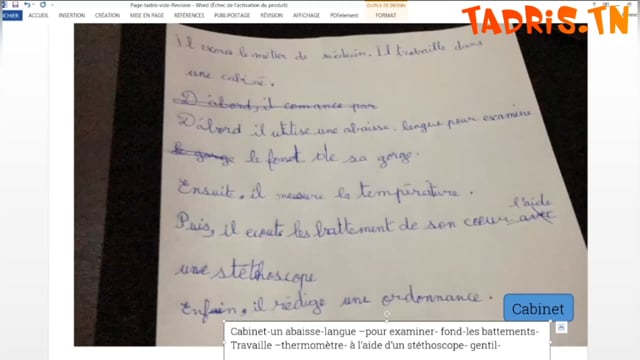 Page-tadris-vide-Revision - Word (Échec de l'activation du produit)
OUTILS DE DESSIN
TADRIS.TN
FICHIER ACCUEIL INSERTION CRÉATION MISE EN PAGE RÉFÉRENCES PUBLIPOSTAGE RÉVISION AFFICHAGE PDFelement FORMAT
Il exerce le métier de médecin. Il travaille dans
une cabiné.
D'abord, il comance par
D'abord il utilise une abaisse-langue pour examiné
le gorge le fond de sa gorge.
Ensuite, il mesure la température.
Puis, il ecoute les battement de son cœur avec
l'aide
une stéthoscope
Enfin, il rédige une ordonnance.
Cabinet
Cabinet-un abaisse-langue –pour examiner- fond-les battements-
Travaille –thermomètre- à l'aide d'un stéthoscope- gentil-